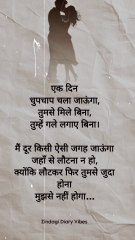 एक दिन
चुपचाप चला जाऊंगा,
तुमसे मिले बिना,
तुम्हें गले लगाए बिना।
मैं दूर किसी ऐसी जगह जाऊंगा
जहाँ से लौटना न हो,
क्योंकि लौटकर फिर तुमसे जुदा
होना
मुझसे नहीं होगा...
Zindagi Diary Vibes